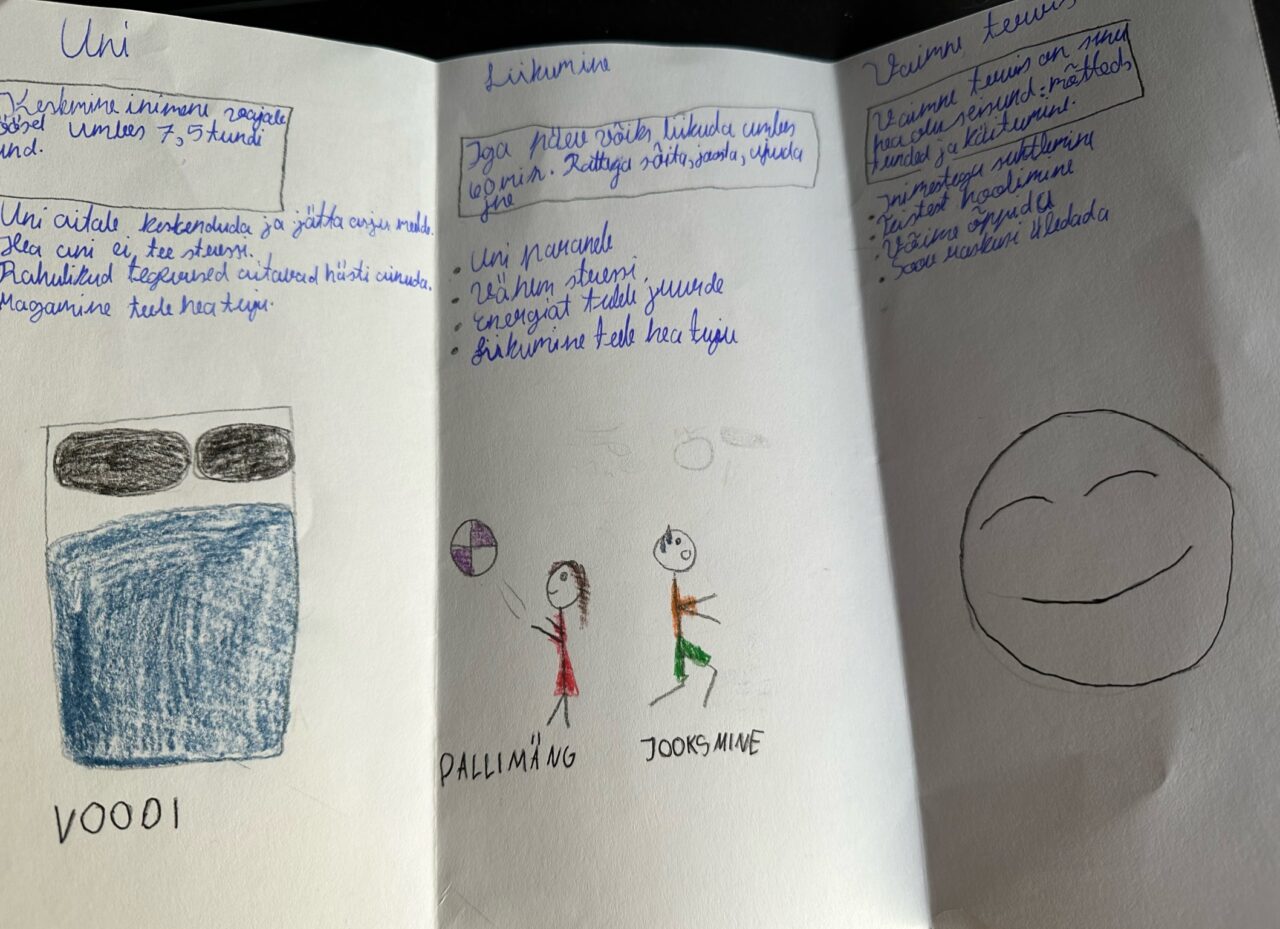 Uni
Keskmine inimene vajale
öösel umbes 7,5 tundi
und.
Uni aitale keskenduda ja jätta asju meelde.
Hea uni ei tee stressi.
Rahulikud tegevused aitavad hästi uinuda.
Magamine teele hea tuju.
VOODI
Liikumine
Iga päev võiks liikuda umbes
60 min. Rattaga sõita, joosta, ujuda
jne
• Uni paranele
• Vähem stressi
• Energiat tulele juurde
• Liikumine teele hea tuju
PALLIMÄNG
JOOKSMINE
Vaimne tervis
Vaimne tervis on sinu
heaolu seisund: mõtted,
tunded ja käitumine.
• Inimestega suhtlemine
• Teistest hoolimine
• Võime õppida
• Saav raskusi ületada